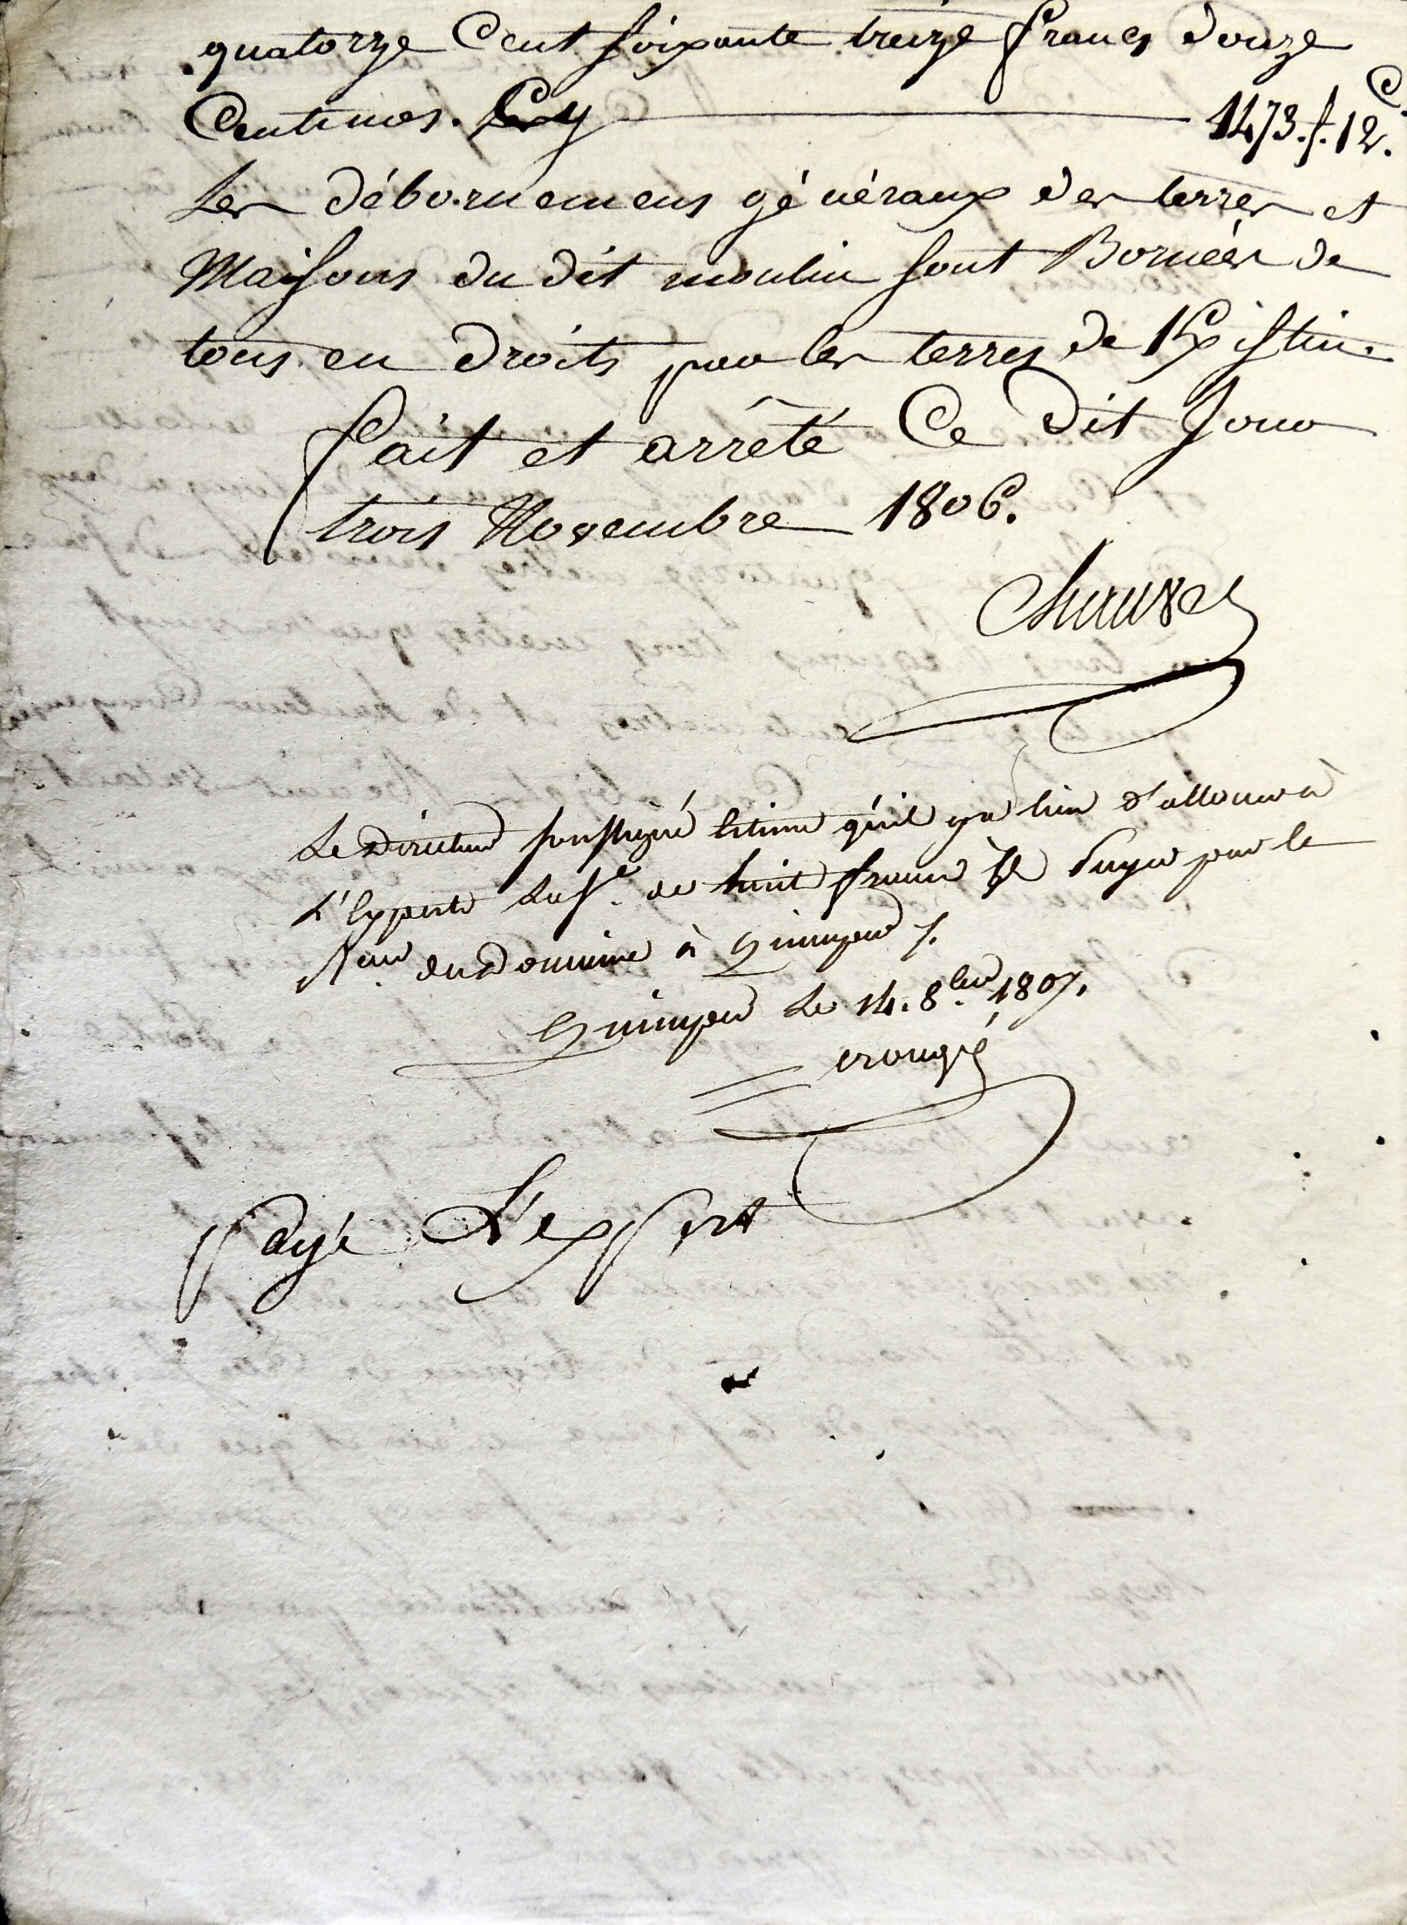 quatorze Cent soixante treize francs douze
Centimes. Cy 1473.f.12.c
Les débornemens généraux des terres et
Maisons du dit moulin sont Bornées de
tous en droits par les terres de
fait et arrêté Ce dit Jour
trois Novembre 1806.
Chauvel
Le Directeur soussigné Estime qu'il y a lieu d'allouer à
L'Experts la se. de huit francs payer par le
Reur du Domaine à Quimper /.
Quimper Le 14. 8bre 1807.
erougé
Payé L'expert